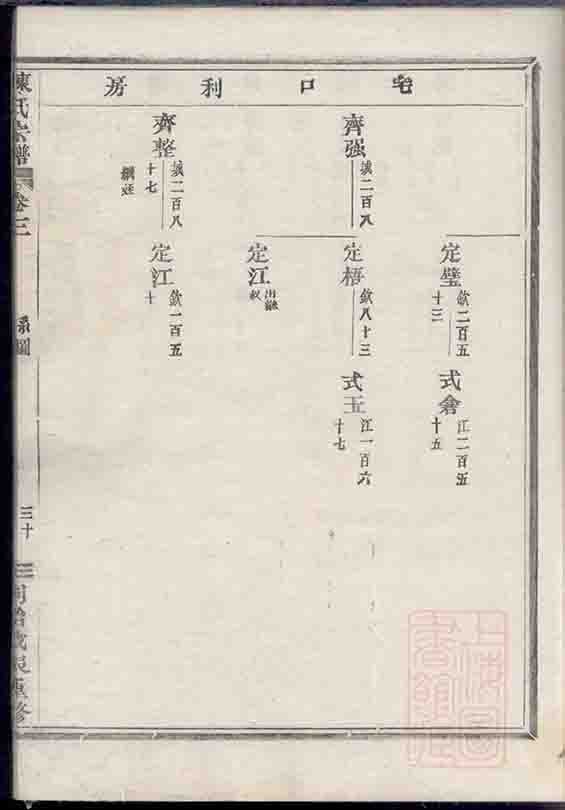 宅口利房
齊强
誠二百八
定璧
欽二百五
十二
式倉
江二百五
十五
定梧
欽八十三
式玉
江一百六
十七
定江
出繼
叔
齊整
誠二百八
十七
繼姪
定江
欽一百五
十
陳氏宗譜
卷三
系圖
三十
上海圖書館藏